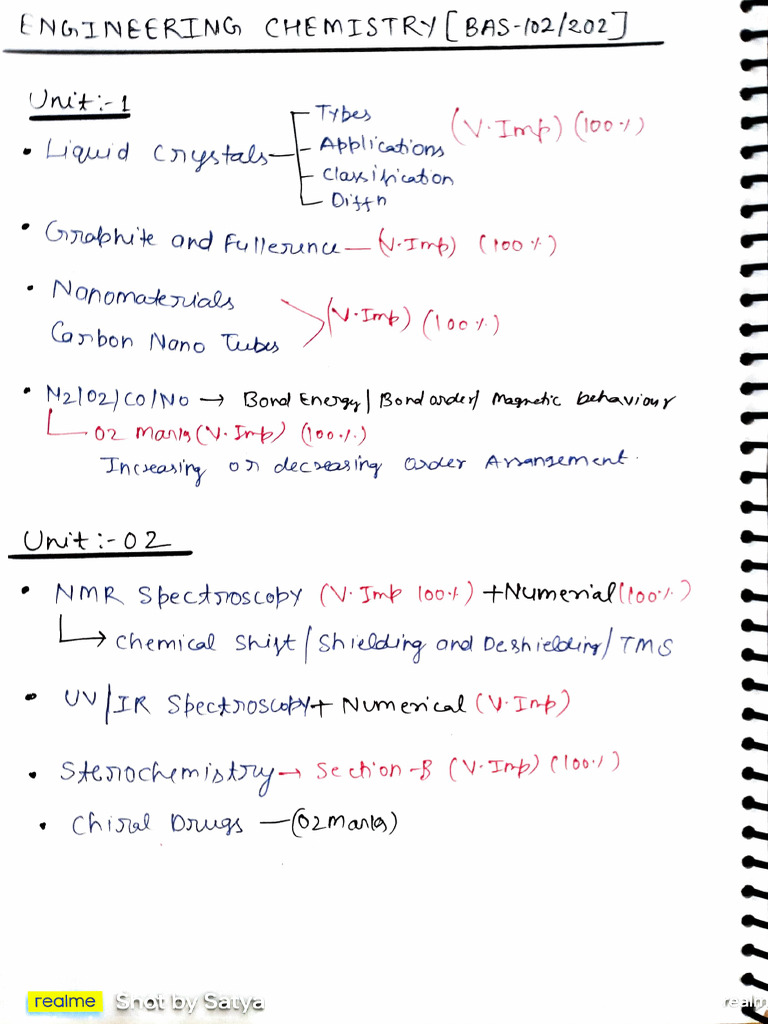 ENGINEERING CHEMISTRY [BAS-102/202]
Unit:-1
• Liquid Crystals
Types
Applications
Classification
Diffn
(V.Imp) (100%)
• Graphite and Fullerence — (V.Imp) (100%)
• Nanomaterials
Carbon Nano Tubes
(V.Imp) (100%)
• N2/O2/CO/NO → Bond Energy/ Bond order/ Magnetic behaviour
02 Marks (V.Imp) (100%)
Increasing or decreasing order Arrangement.
Unit:-02
• NMR Spectroscopy (V.Imp 100%) + Numerial (100%)
→ Chemical Shift / Shielding and Deshielding / TMS
• UV/IR Spectroscopy + Numerical (V.Imp)
• Sterochemistry → Section-B (V.Imp) (100%)
• Chiral Drugs — (02 Marks)
realme Shot by Satya
realm